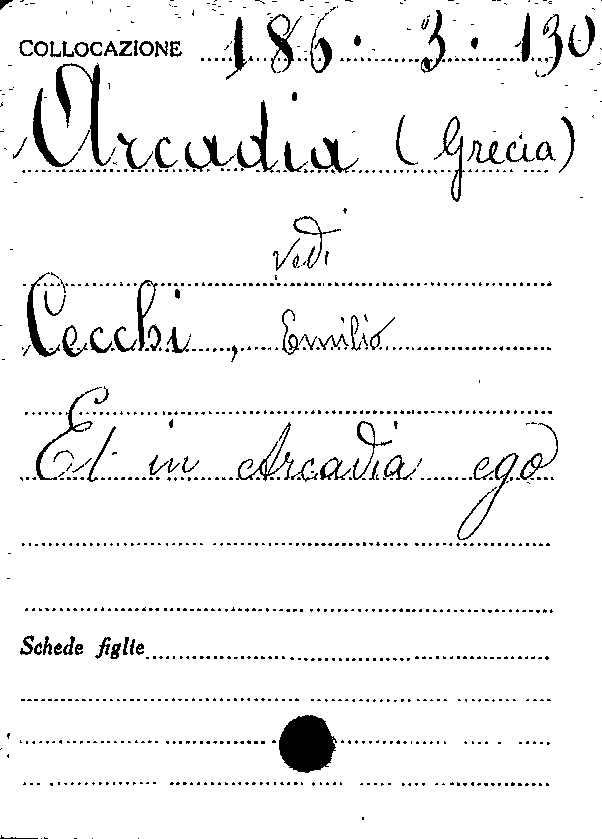 COLLOCAZIONE 186.3.130
Arcadia (Grecia)
Vedi
Cecchi, Emilio
Et in Arcadia ego
Schede figlie